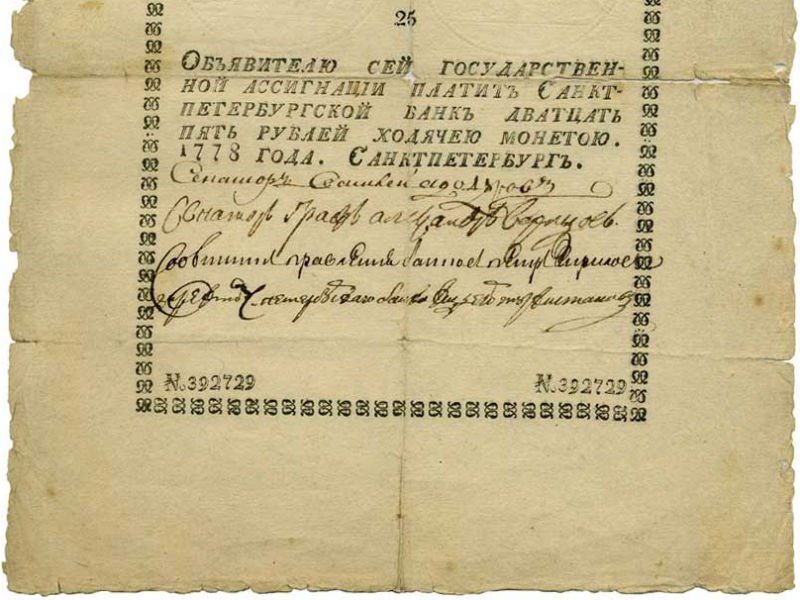 25
Объявителю сей государствен-
ной ассигнацїи платитъ Санкт-
петербургской банкъ дватцать
пять рублей ходячею монетою.
1778 года. Санктпетербургъ.
Сенаторъ
Сенаторъ графъ александръ Воронцовъ.
Советникъ правления банковъ
N.392729 N.392729